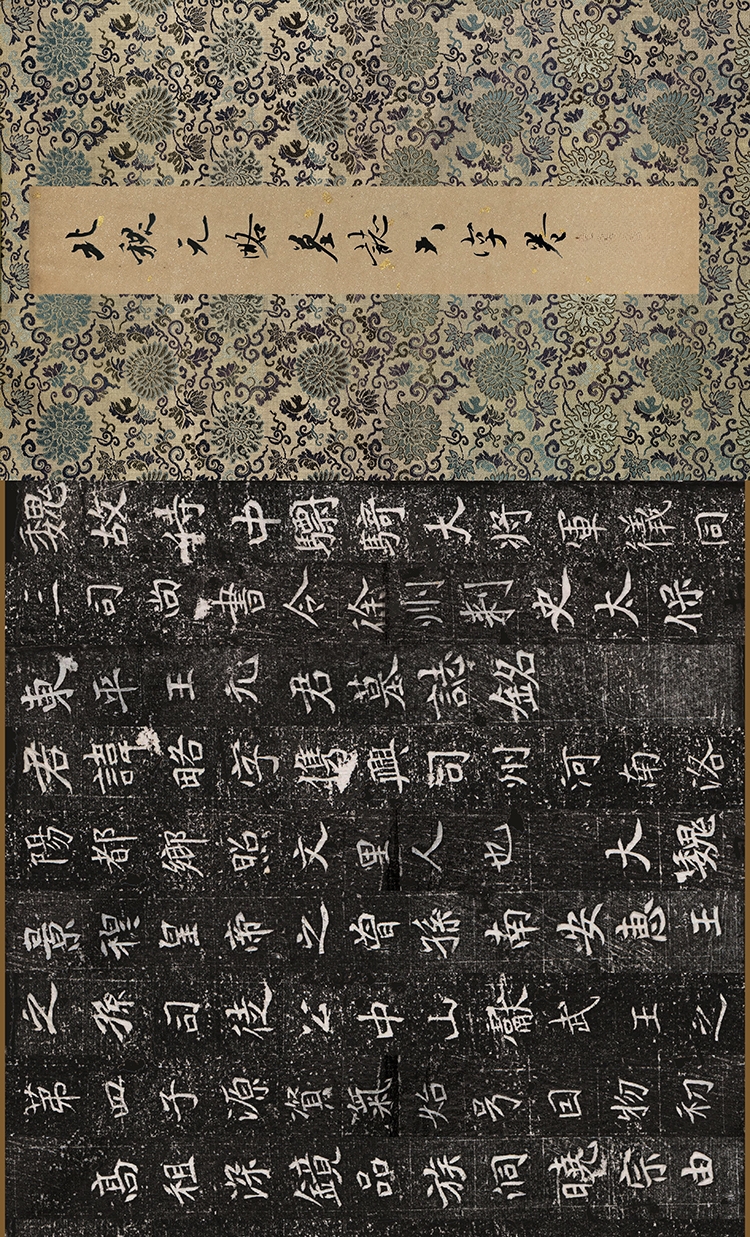 北魏元略墓誌字卷
魏故侍中驃騎大將軍儀同
三司尚書令徐州刺史太保
東平王元君墓誌銘
君諱略字儁興司州河南洛
陽都鄉照文里人也 大魏
景穆皇帝之曾孫南安惠王
之孫司徒公中山獻武王之
第四子源資氣始号因物初
高祖深鏡品族洞曉宗由